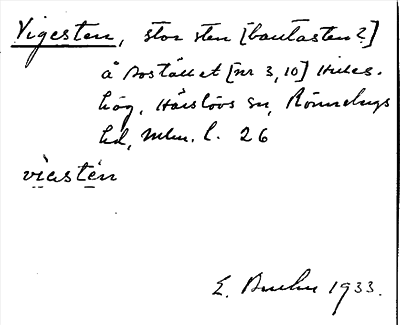 Vigesten, stor sten [bautasten?]
å Bostället [nr 3, 10] Hvies.
hög, Härslövs sn, Rönnebergs
hd, Mlm. l. 26
viastén
E. 1933.